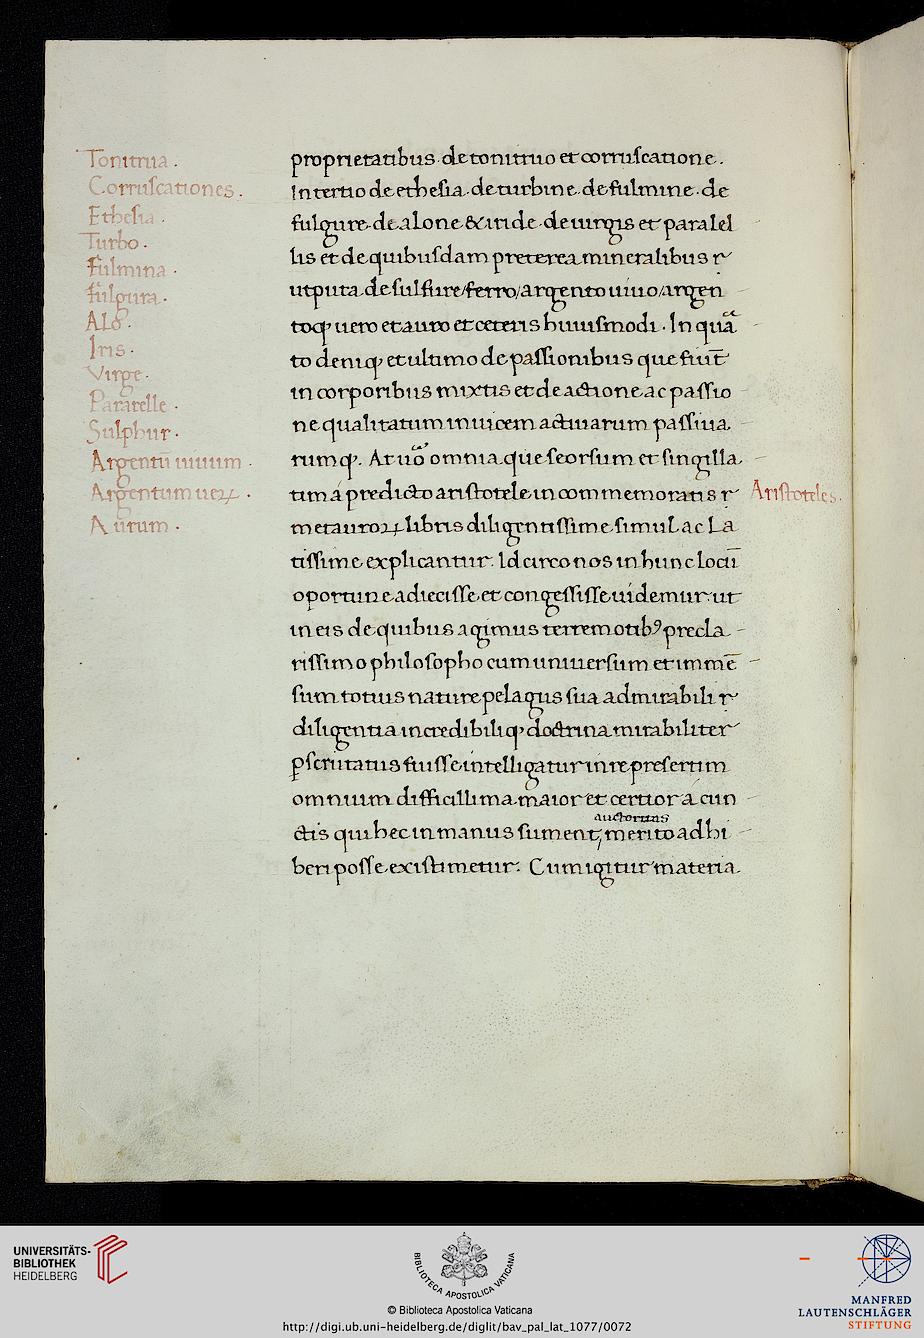 Tonitrua .
Corruscationes .
Ethesia .
Turbo .
Fulmina .
Fulgura .
Alo .
Iris .
Virge .
Pararelle .
Sulphur .
Argentū uiuum .
Argentum ueꝝ .
Aurum .
proprietatibus de tonitruo et corruscatione .
In tertio de ethesia . de turbine . de fulmine . de
fulgure . de alone & iride . de uirgis et paralel
lis et de quibusdam preterea mineralibus
utputa de sulfure/ferro/argento uiuo/argen
toq; uero et auro et ceteris huiusmodi . In qua
to deniq; et ultimo de passionibus que fiūt
in corporibus mixtis et de actione ac passio
ne qualitatum inuicem actiuarum passiua
rumq; . At uo omnia que seorsum et singilla
tim á predicto aristotele in commemoratis
metauroꝝ libris diligentissime simul ac la
tissime explicantur . Idcirco nos in hunc locū
oportune adiecisse et congessisse uidemur ut
in eis de quibus agimus terremotibꝰ precla
rissimo philosopho cum uniuersum et immē
sum totius nature pelagus sua admirabili
diligentia incredibiliq; doctrina mirabiliter
ꝑscrutatus fuisse intelligatur in re presertim
omnium difficillima maior et certior á cun
auctoritas
ctis qui hec in manus sument, merito adhi
beri posse existimetur . Cum igitur materia
Aristoteles .
UNIVERSITÄTS-
BIBLIOTHEK
HEIDELBERG
BIBLIOTECA APOSTOLICA VATICANA
© Biblioteca Apostolica Vaticana
http://digi.ub.uni-heidelberg.de/diglit/bav_pal_lat_1077/0072
MANFRED
LAUTENSCHLÄGER
STIFTUNG